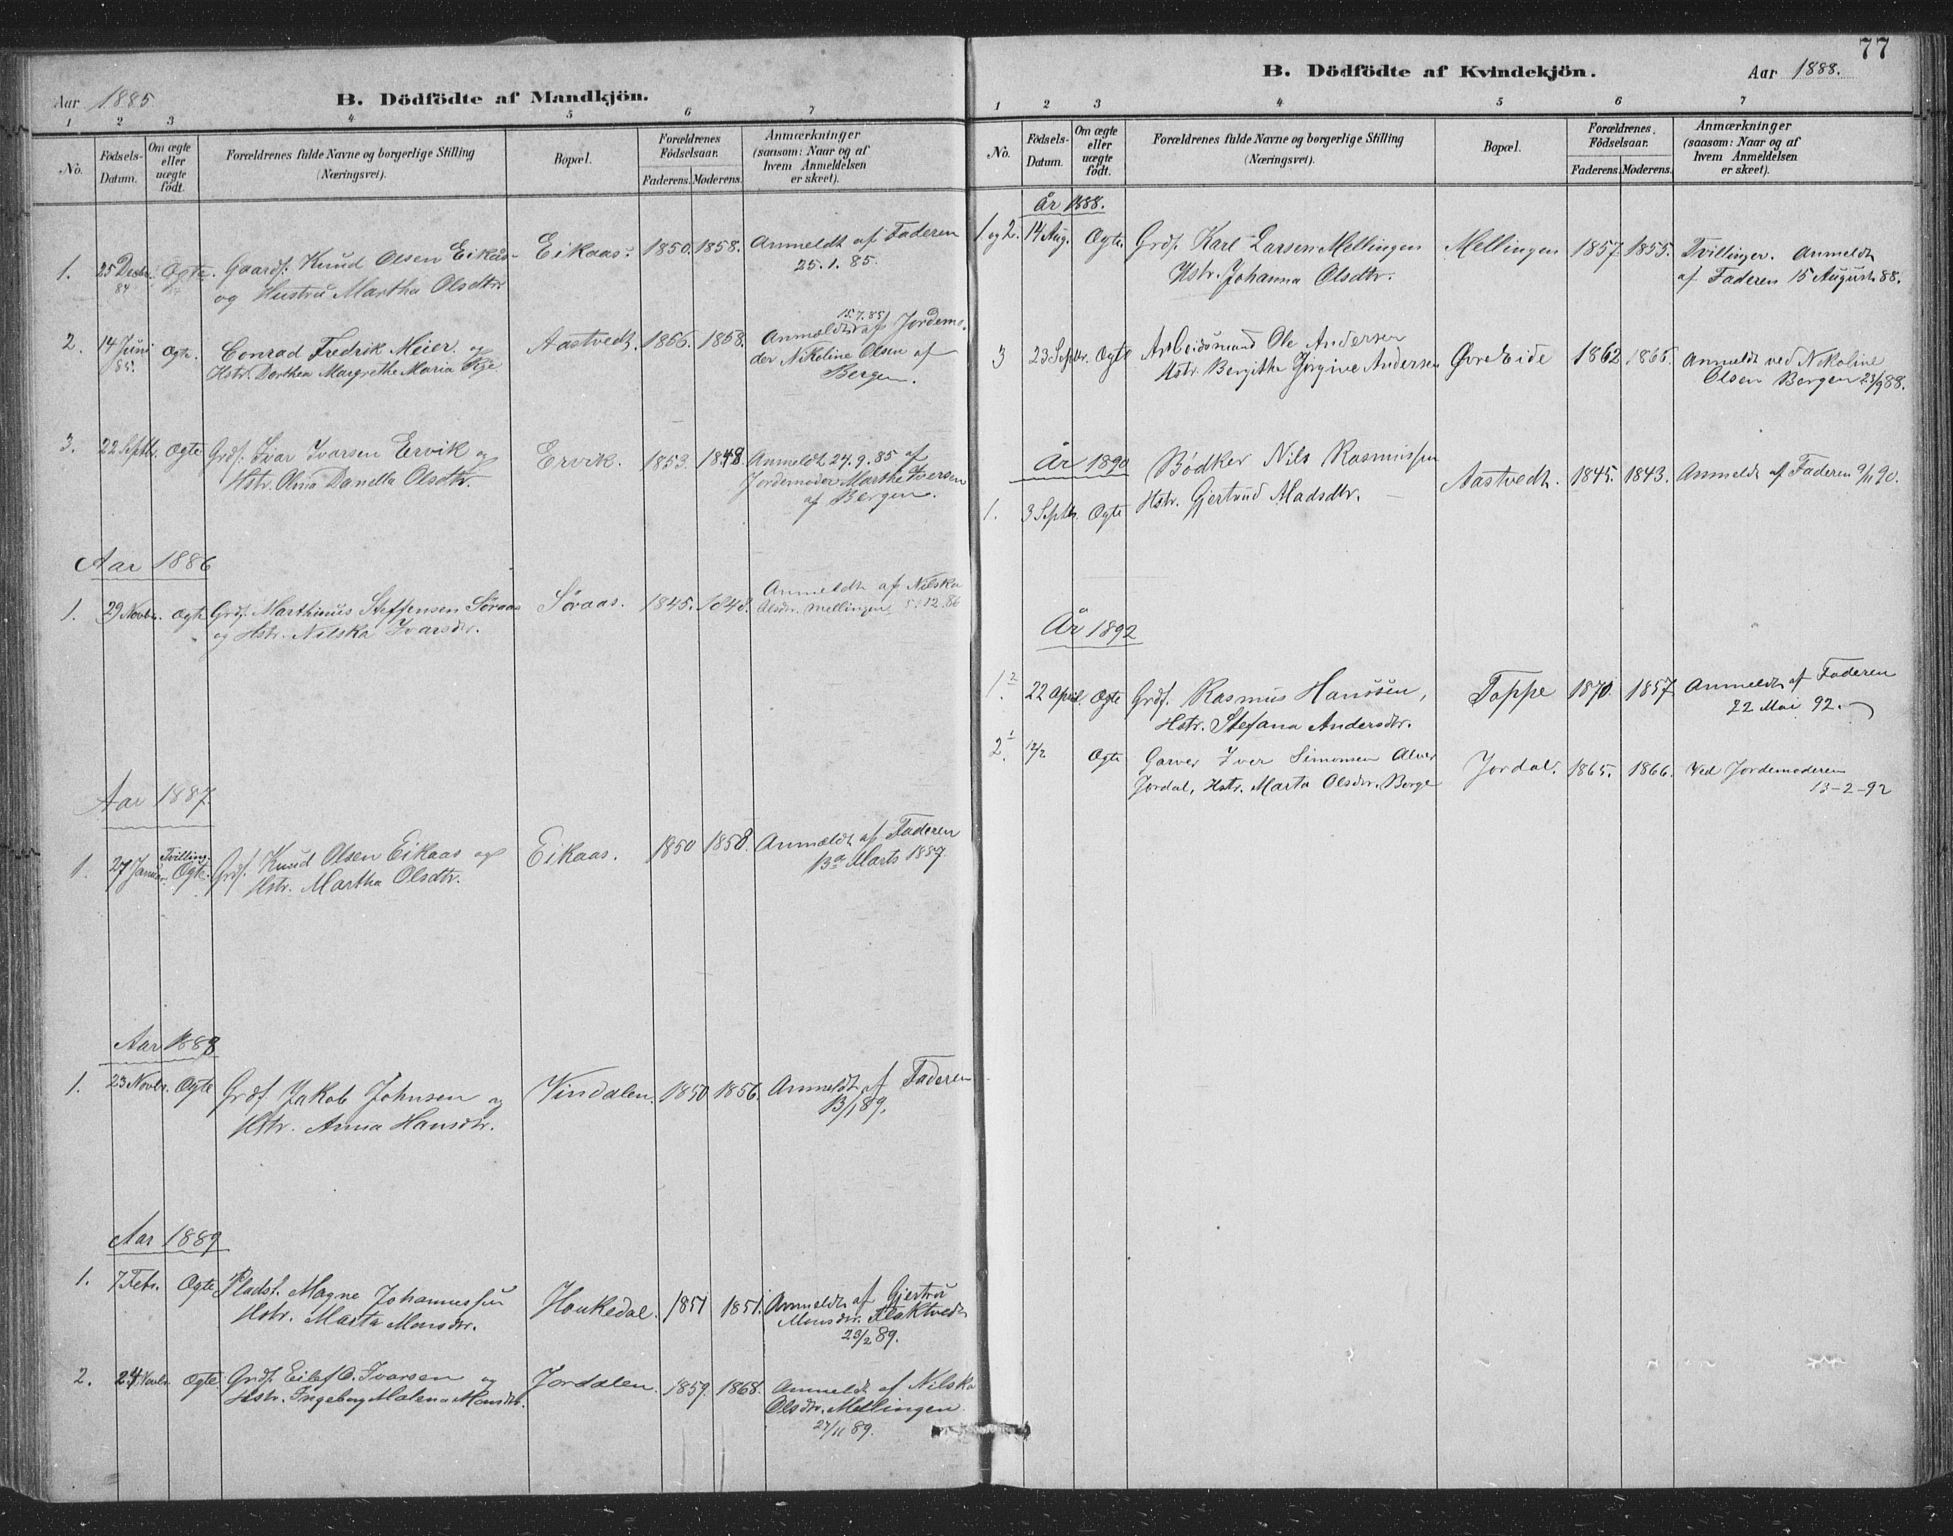 Aar 1885
B. Dödfödte af Mandkjön.
1 2 3 4 5 6 7
No.
Födsels-Datum.
Om ægte eller uægte födt.
Forældrenes fulde Navne og borgerlige Stilling
(Næringsvei).
Bopæl.
Forældrenes Födselsaar.
Faderens. Moderens.
Anmærkninger
(saasom: Naar og af
hvem Anmeldelsen
er skeet).
1. 25 Decbr. Ægte. Gaardf. Knud Olsen Eikaas Eikaas. 1850. 1858. Anmeldt af Faderen
84 og Hustru Martha Olsdtr. 25.1.85.
15.7.85
2. 14 Juni Ægte. Conrad Fredrik Meier og Aastvedt. 1856. 1858. Anmeldt af Jordemo-
85. Hstr. Dorthea Margrethe Maria der Nikoline Olsen af
Bergen.
3. 22 Septbr. Ægte Grdf. Ivar Ivarsen Ervik og Ervik. 1853. 1848. Anmeldt 24.9.85 af
Hstr. Olina Danella Olsdtr. Jordemoder Marthe Iversen
af Bergen.
Aar 1886
1. 29 Novbr. Ægte Grdf. Marthinus Steffensen Søraas Søraas. 1845. 1848. Anmeldt af Nilska
og Hstr. Nilska Ivarsdr. Olsdr. Mellingen 5.12.86
Aar 1887.
Tvilling.
1. 27 Januar. Ægte. Grdf. Knud Olsen Eikaas og Eikaas. 1850 1858. Anmældt af Faderen
Hstr. Martha Olsdtr. 13de Marts 1887.
Aar 1888
1. 23 Novbr. Ægte Grdf. Jakob Johnsen og Vindalen. 1850 1856. Anmeldt af Faderen
Hstr. Anna Hansdtr. 13/1 89.
Aar 1889
1. 7 Febr. Ægte Pladsf. Magne Johannessen Haukedal. 1851 1851. Anmeldt af Gjertru
Hstr. Marta Monsdr. Monsdr. Flaktvedt
23/2 89.
2. 24 Novbr. Ægte Grdf. Eilef O. Ivarsen og Jordalen. 1859. 1868. Anmeldt af Nilska
Hstr. Ingeborg Malena Monsdtr. Olsdtr. Mellingen
27/11 89.
77
B. Dödfödte af Kvindekjön.
Aar 1888.
1 2 3 4 5 6 7
No.
Födsels-Datum.
Om ægte eller uægte födt.
Forældrenes fulde Navne og borgerlige Stilling
(Næringsvei).
Bopæl.
Forældrenes Födselsaar.
Faderens. Moderens.
Anmærkninger
(saasom: Naar og af
hvem Anmeldelsen
er skeet).
År 1888.
1 og 2. 14 Aug. Ægte. Grdf. Karl Larsen Mellingen Mellingen 1857 1855. Tvillinger. Anmeldt
Hstr. Johanna Olsdtr. af Faderen 15 August 88.
3 23 Septbr. Ægte Arbeidsmand Ole Andersen Øvre Eide 1862 1865. Anmeldt ved Nikoline
Hstr. Bergithe Jørgine Andersen Olsen Bergen 23/9 88.
År 1890 Bødker Nils Rasmussen
1. 3 Septbr. Ægte Hstr. Gjertrud Madsdtr. Aastvedt. 1845. 1843. Anmeldt af Faderen 9/11 90.
År 1892
1.2 22 April. Ægte Grdf. Rasmus Hanssen, Toppe 1870 1857 Anmeldt af Faderen
Hstr. Stefana Andersdtr. 22 Mai 92.
2.1 12/2 Ægte Garver Iver Simonsen Alver Jordal. 1865. 1866. Ved Jordemoderen
Jordal, Hstr. Marta Olsdtr. Berge 13-2-92